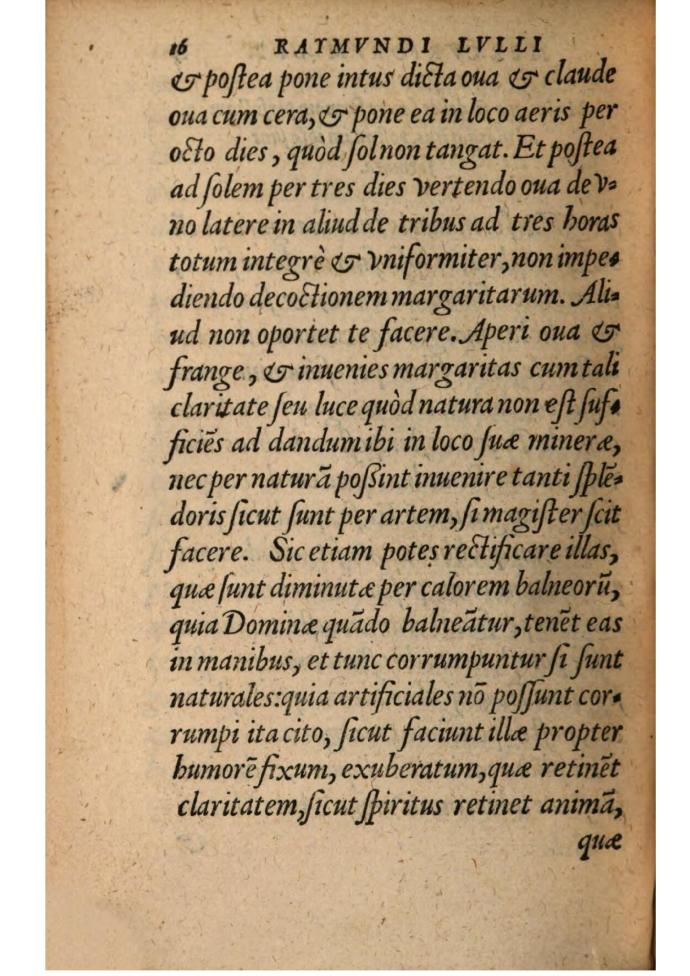 16 RAYMVNDI LVLLI
& poſtea pone intus dicta oua & claude
oua cum cera, & pone ea in loco aeris per
octo dies, quòd ſol non tangat. Et poſtea
ad ſolem per tres dies vertendo oua de v-
no latere in aliud de tribus ad tres horas
totum integrè & vniformiter, non impe-
diendo decoctionem margaritarum. Ali-
ud non oportet te facere. Aperi oua &
frange, & inuenies margaritas cum tali
claritate ſeu luce quòd natura non eſt ſuf-
ficiēs ad dandum ibi in loco ſuæ mineræ,
nec per naturā poſsint inuenire tanti ſplē-
doris ſicut ſunt per artem, ſi magiſter ſcit
facere. Sic etiam potes rectificare illas,
quæ ſunt diminutæ per calorem balneorū,
quia Dominæ quādo balneātur, tenēt eas
in manibus, et tunc corrumpuntur ſi ſunt
naturales: quia artificiales nō poſſunt cor-
rumpi ita cito, ſicut faciunt illæ propter
humorē fixum, exuberatum, quæ retinēt
claritatem, ſicut ſpiritus retinet animā,
quæ